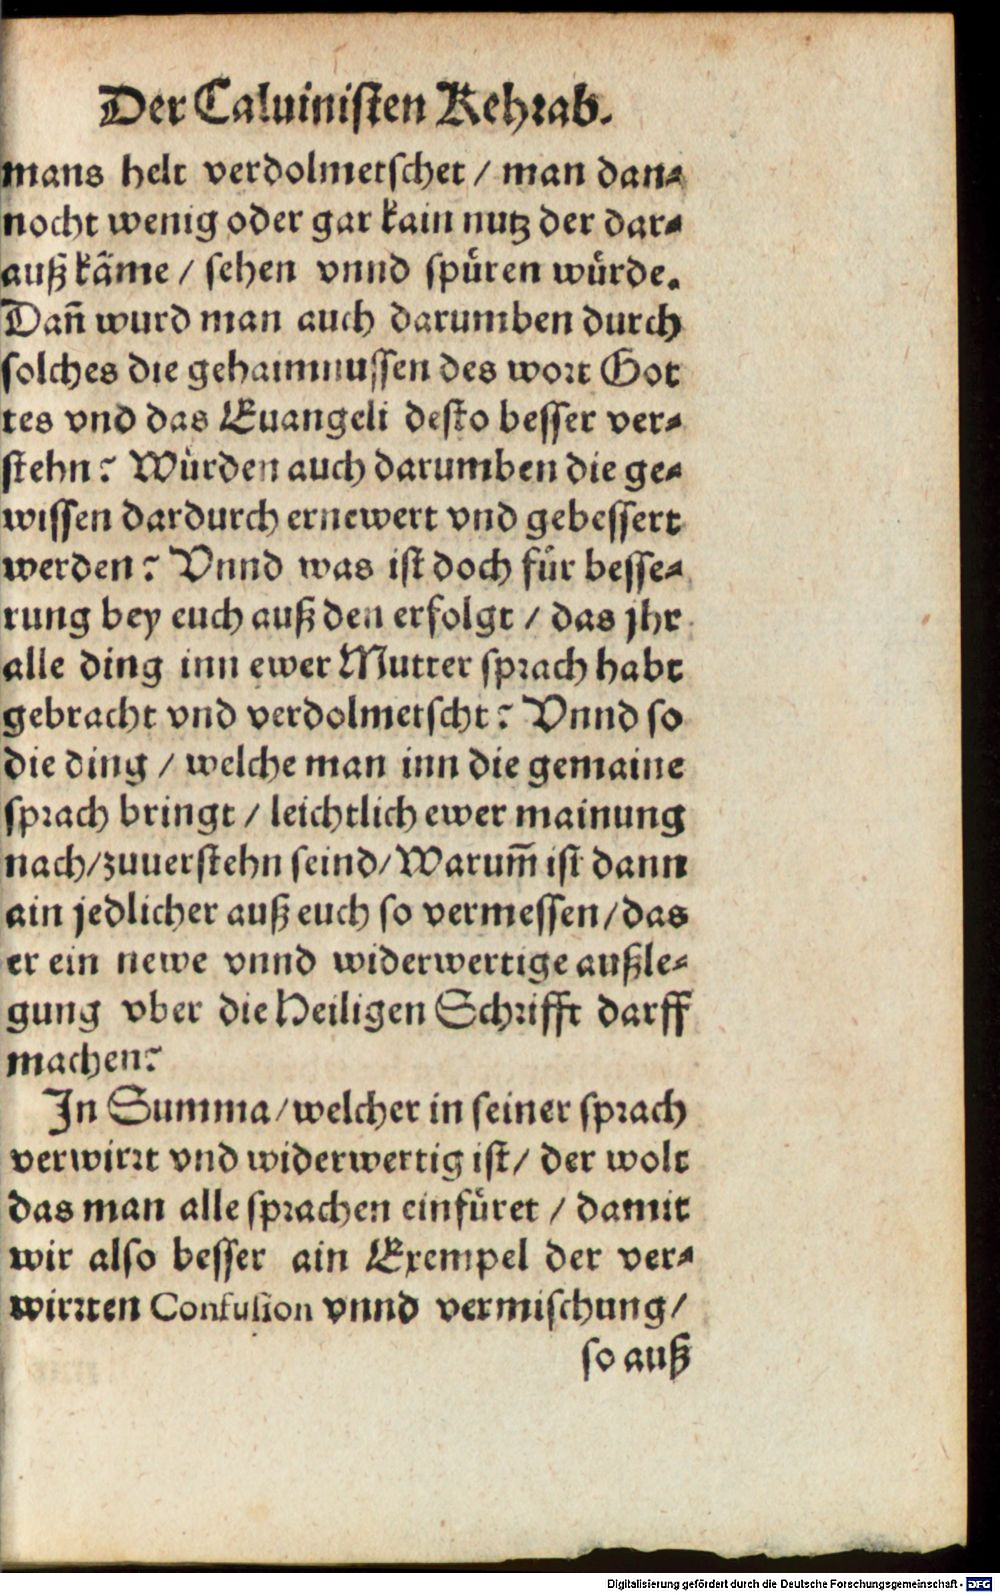 Der Caluinisten Kehrab.
mans helt verdolmetschet / man dan⸗
nocht wenig oder gar kain nutz der dar⸗
auß käme / sehen vnnd spüren würde.
Dañ wurd man auch darumben durch
solches die gehaimnussen des wort Got
tes vnd das Euangeli desto besser ver⸗
stehn? Würden auch darumben die ge⸗
wissen dardurch ernewert vnd gebessert
werden? Vnnd was ist doch für besse⸗
rung bey euch auß den erfolgt / das jhr
alle ding inn ewer Mutter sprach habt
gebracht vnd verdolmetscht? Vnnd so
die ding / welche man inn die gemaine
sprach bringt / leichtlich ewer mainung
nach/zuuerstehn seind/Warum̃ ist dann
ain jedlicher auß euch so vermessen/das
er ein newe vnnd widerwertige außle⸗
gung vber die Heiligen Schrifft darff
machen?
In Summa/welcher in seiner sprach
verwirrt vnd widerwertig ist/ der wolt
das man alle sprachen einfüret / damit
wir also besser ain Exempel der ver⸗
wirrten Confusion vnnd vermischung/
so auß
Digitalisierung gefördert durch die Deutsche Forschungsgemeinschaft - DFG